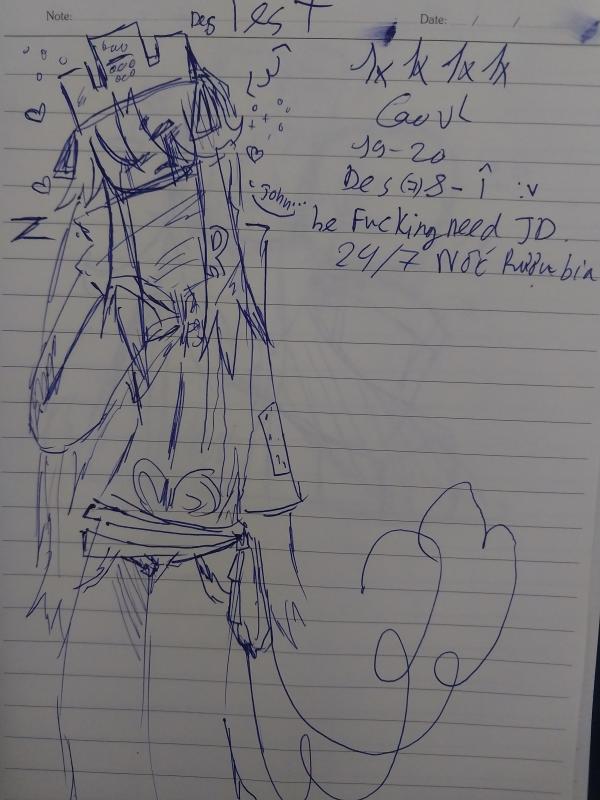 Note:
Des Test
Date: / /
1x 1x 1x 1x
19-20
Des (7) 8 - î :v
John...
he Fucking need JD.
24/7 NOT
N